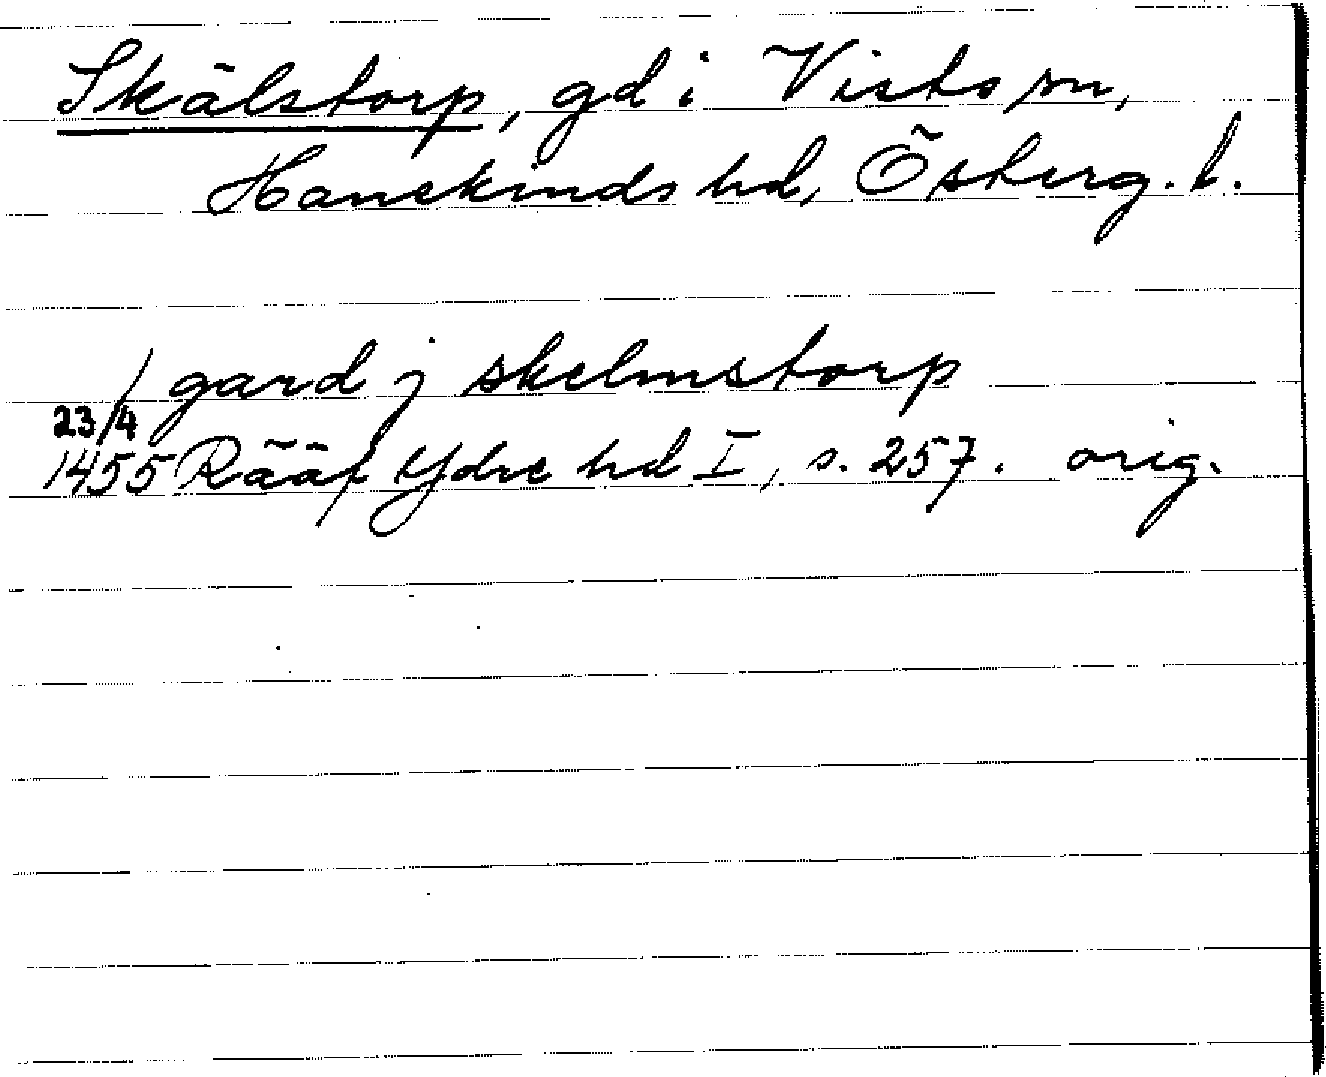 Skälstorp, gd i Vists sn,
Hanekinds hd, Österg. l.
gard j skelmstorp
23/4
1455 Rääf Ydre hd I, s. 257. orig.